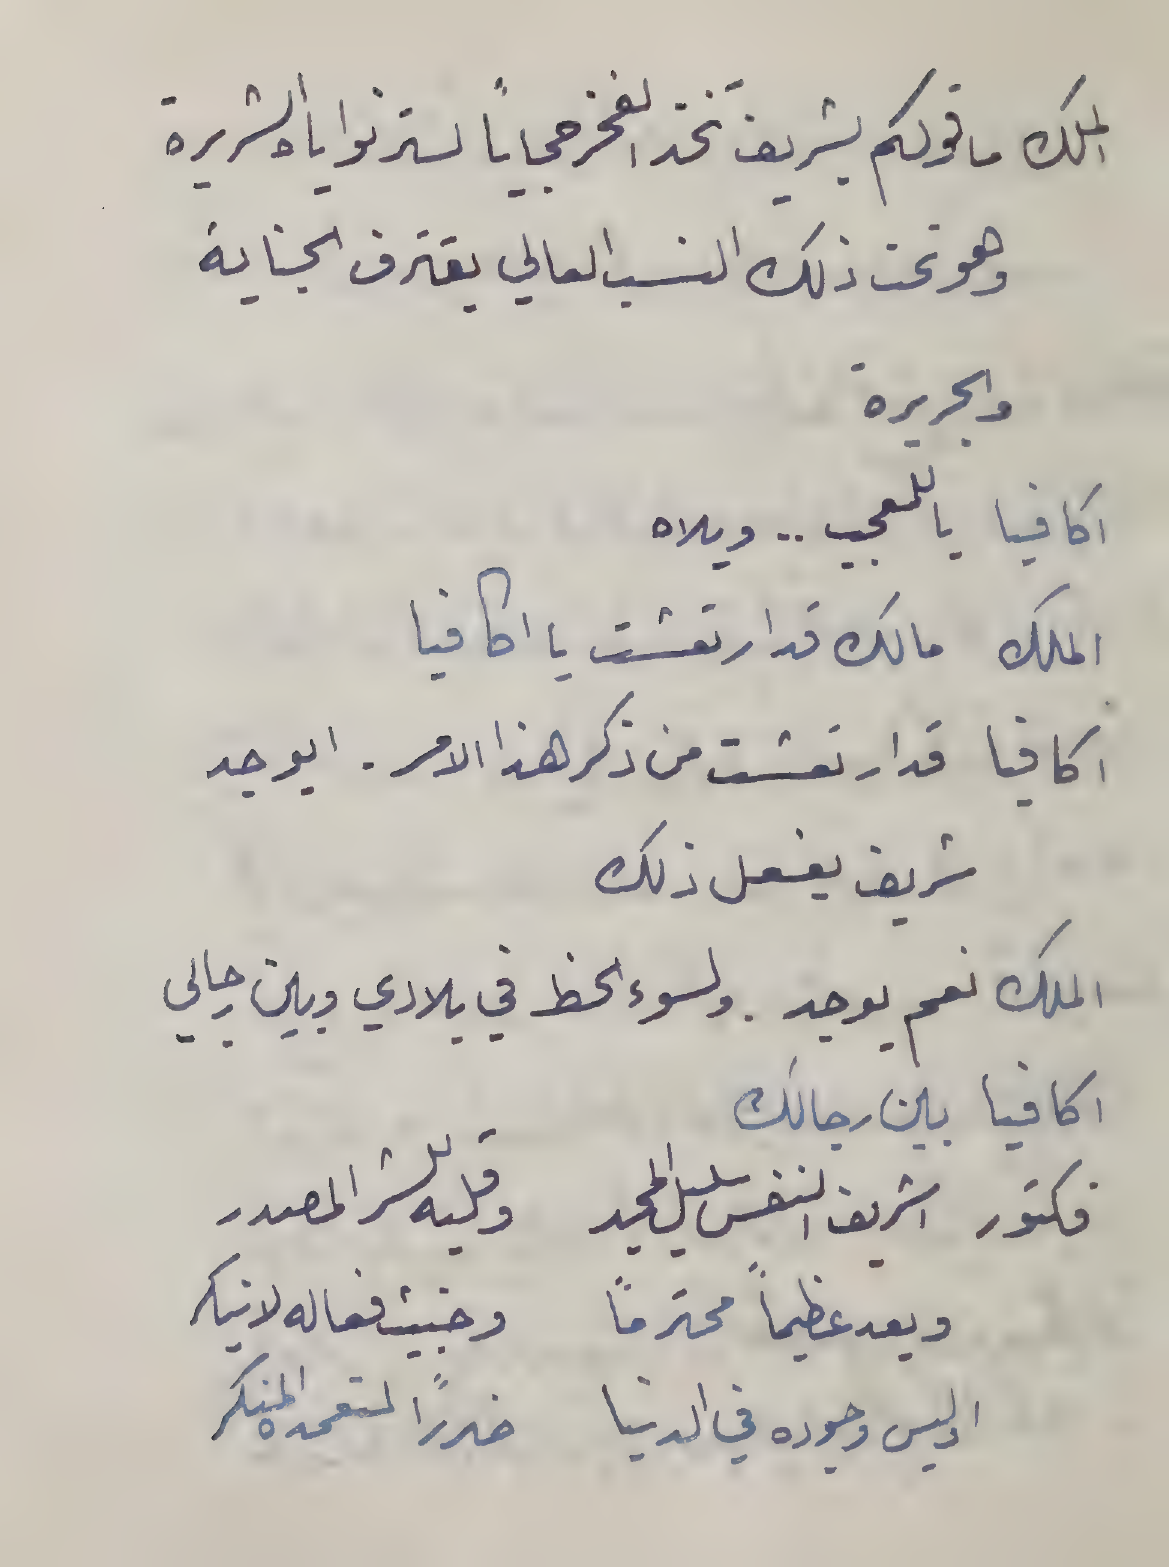 الملك ما قولكم بشريف تخذ الفخر حجاباً لستر نواياه الشريرة
وهو تحت ذلك النسب العالي يقترف الجناية
والجريرة
اكافيا ياللعجب .. ويلاه
الملك مالك قد ارتعشت يا اكافيا
اكافيا قد ارتعشت من ذكر هذا الامر . ايوجد
شريف يفعل ذلك
الملك نعم يوجد . ولسوء الحظ في بلادي وبين رجالي
اكافيا بين رجالك
فكتور اشريف النفس سليل المجد وقلبه للشر المصدر
ويعد عظيماً محترماً وخبيث فعاله لا تنكر
اوليس وجوده في الدنيا ضرراً لتعمده المنكر